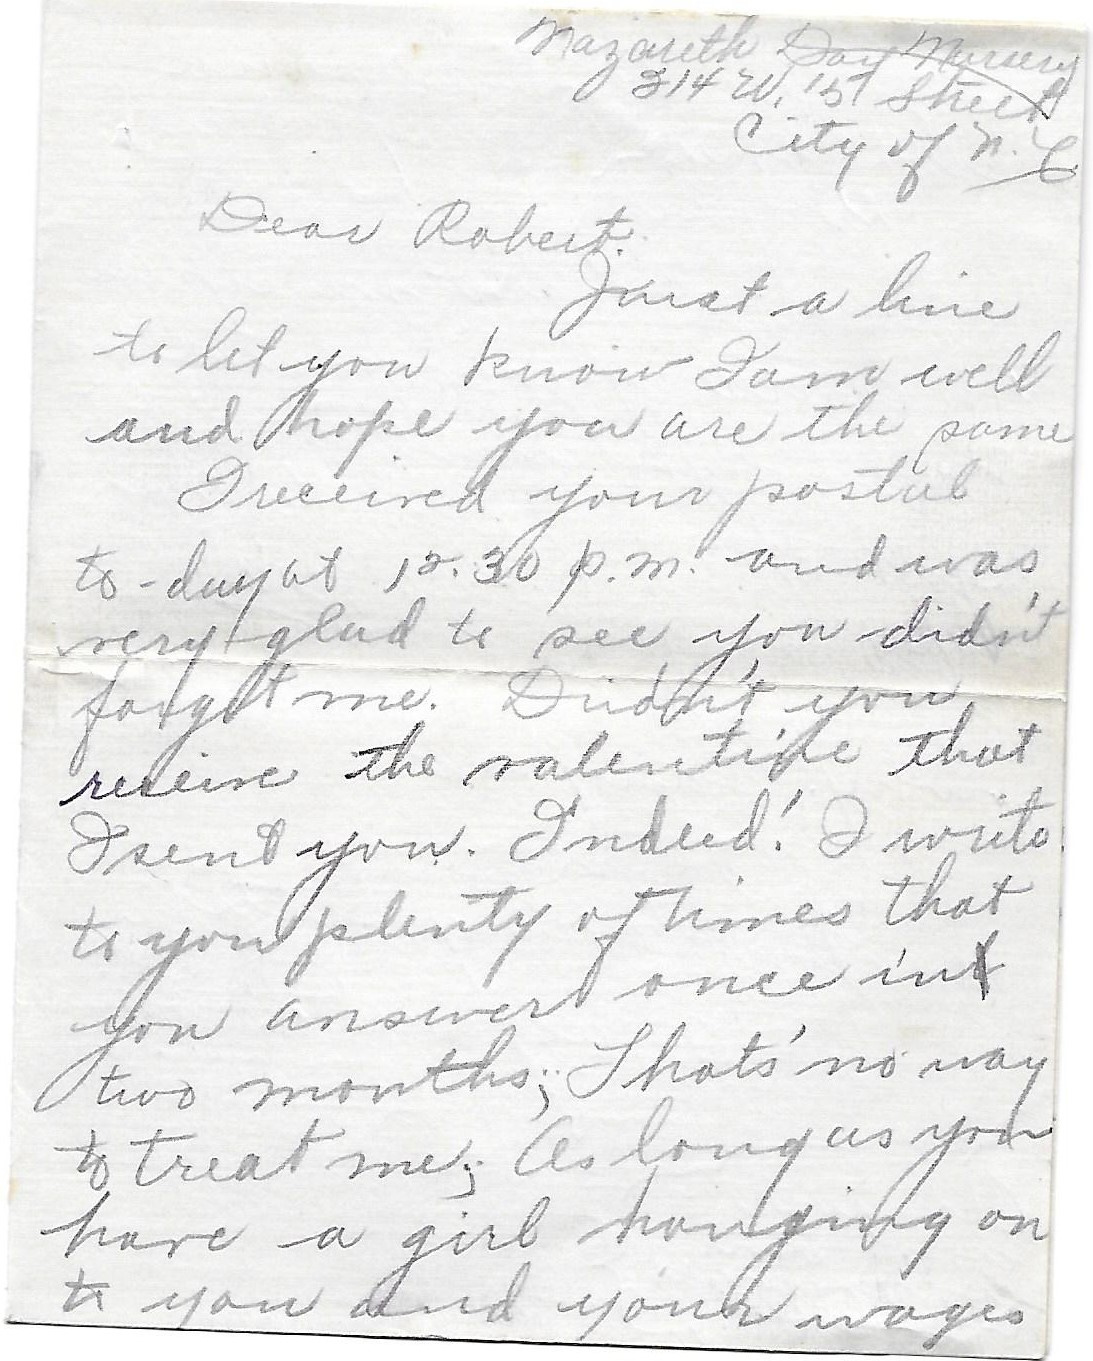 Nazareth Day Nursery
214 W. 15 Street
City of N. Y
Dear Robert.
Just a line
to let you know I am well
and hope you are the same
I received your postal
to-day at 12.30 p.m. and was
very glad to see you didn't
forget me. Didn't you
receive the valentine that
I sent you. Indeed! I write
to you plenty of times that
you answer once in
two months; That's no way
to treat me; As long as you
have a girl hanging on
to you and your wages